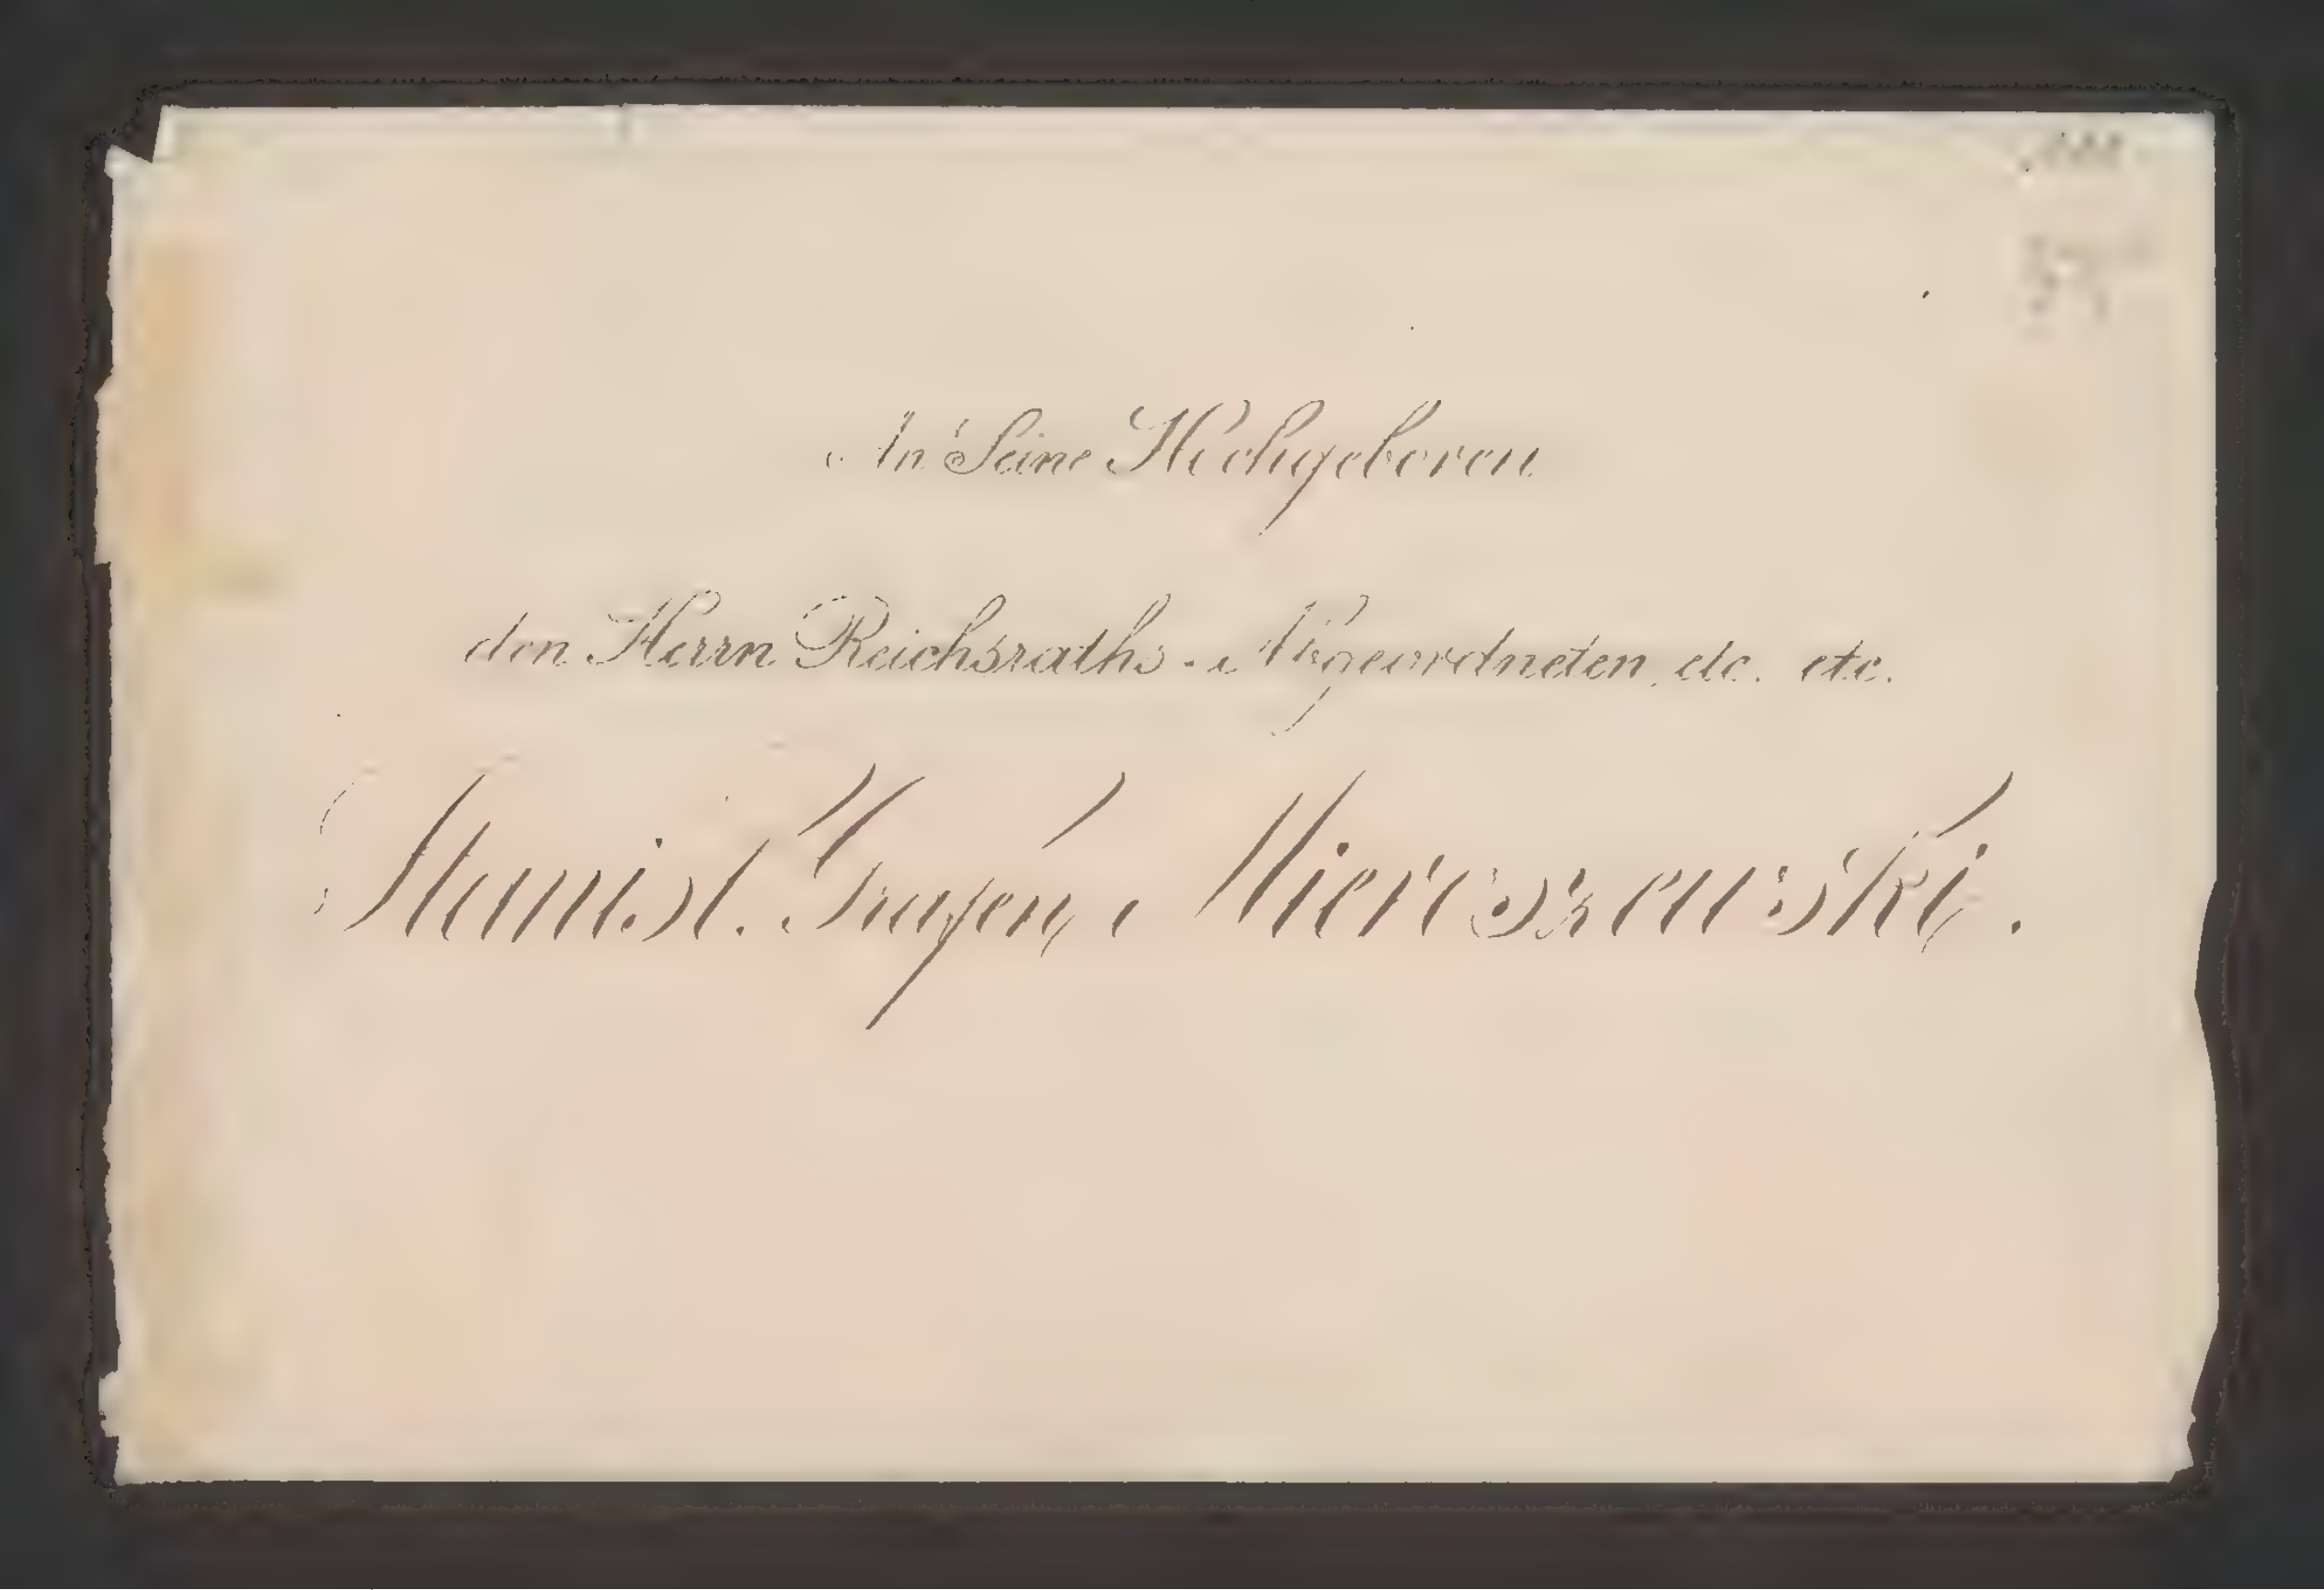 An Seine Hochgeboren
den Herrn Reichsraths-Abgeordneten etc. etc.
Stanisl. Grafen Mieroszewski.